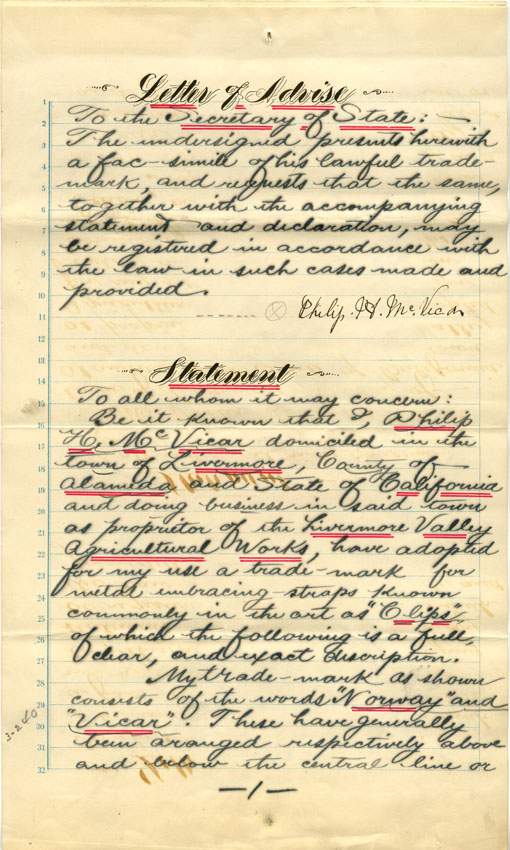 Letter of Advise
1
2
3
4
5
6
7
8
9
10
11
12
13
14
15
16
17
18
19
20
21
22
23
24
25
26
27
28
29
30
31
32
To the Secretary of State: —
The undersigned presents herewith
a fac-simile of his lawful trade-
mark, and requests that the same,
together with the accompanying
statement and declaration, may
be registered in accordance with
the law in such cases made and
provided.
Philip. H. Mc. Vicar
Statement
To all whom it may concern:
Be it known that I, Philip
H, Mc Vicar domiciled in the
town of Livermore, County of
Alameda and State of California
and doing business in said town
as proprietor of the Livermore Valley
Agricultural Works, have adopted
for my use a trade-mark for
metal embracing-straps known
commonly in the art as "Clips",
of which the following is a full,
clear, and exact discription.
My trade-mark as shown
consists of the words "Norway" and
"Vicar". These have generally
been aranged respectively above
and below the central line or
3-240
—1—